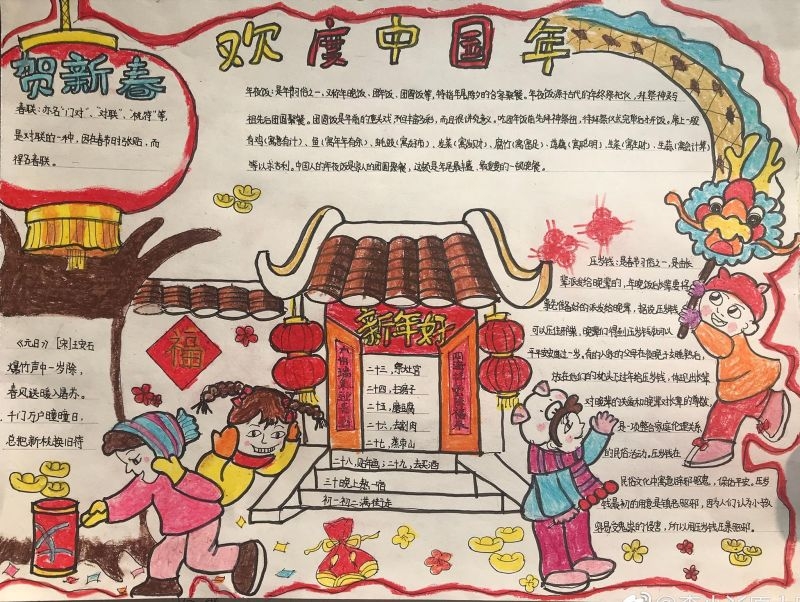 欢度中国年
贺新春
春联：亦名“门对”、“对联”、“桃符”等，
是对联的一种，因在春节时张贴，而
得名春联。
年夜饭：是年前习俗之一，又称年晚饭、团年饭、团圆饭等，特指年尾除夕的合家聚餐。年夜饭源于古代的年终祭祀仪，拜祭神灵与
祖先后团圆聚餐。团圆饭是年前的重头戏，不但丰富多彩，而且很讲究意义。吃团年饭前先拜神祭祖，待拜祭仪式完毕后才开饭。席上一般
有鸡（寓有计）、鱼（寓年年有余）、蚝豉（寓好市）、发菜（寓发财）、腐竹（寓富足）、莲藕（寓聪明）、生菜（寓生财）、生蒜（寓会计算）
等以求吉利。中国人的年夜饭是家人的团圆聚餐，这顿是年尾最丰盛、最重要的一顿晚餐。
《元日》 [宋]王安石
爆竹声中一岁除，
春风送暖入屠苏。
千门万户曈曈日，
总把新桃换旧符
福
新年好
二十三，祭灶宫
二十四，扫房子
二十五，磨豆腐
二十六，去割肉
二十七，蒸枣山
二十八，贴年画；二十九，去买酒
三十晚上熬一宿
初一初二满街走
压岁钱：是春节习俗之一，是由长
辈派发给晚辈的，年晚饭后长辈要将
事先准备好的派发给晚辈，据说压岁钱
可以压住邪祟，晚辈们得到压岁钱就可以
平平安安度过一岁。有的人家的父母在夜晚子女睡熟后，
放在他们的枕头下过年给压岁钱，体现出长辈
对晚辈的关爱和晚辈对长辈的尊敬，
是一项整合家庭伦理关系
的民俗活动。压岁钱在
民俗文化中寓意辟邪驱鬼，保佑平安。压岁
钱最初的用意是镇恶驱邪，因为人们认为小孩
容易受鬼祟的侵害，所以用压岁钱压祟驱邪。